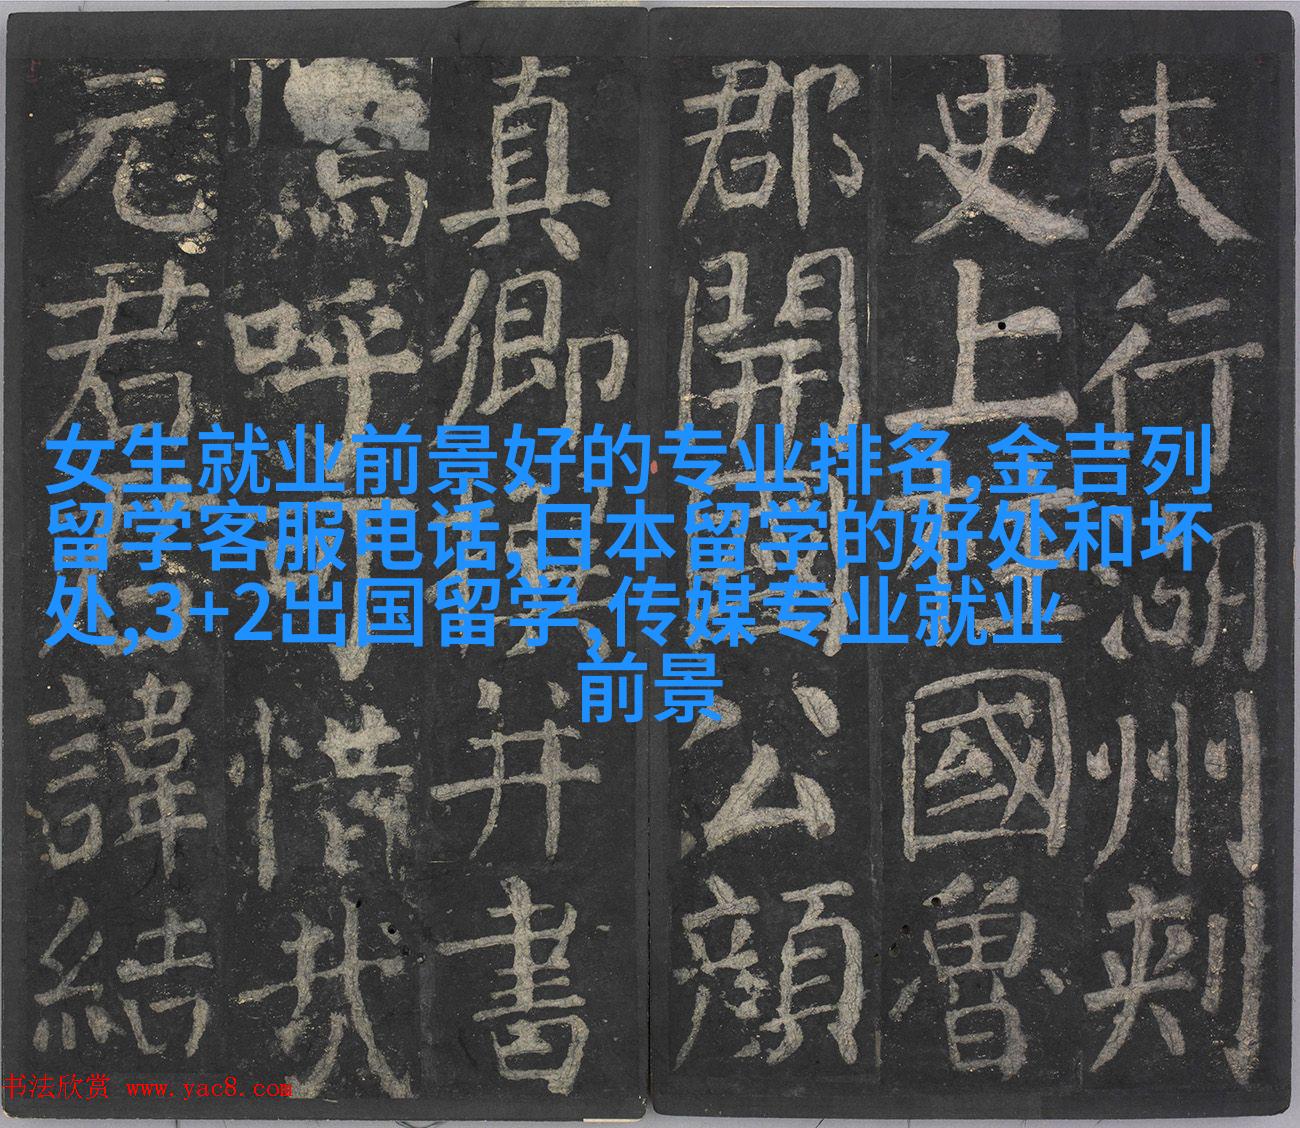 女生就业前景好的专业排名,金吉列
留学客服电话,日本留学的好处和坏
处,3+2出国留学,传媒专业就业
前景
夫行湖州刺
史上柱國魯
郡開國公顏
真卿撰并書
嗚呼可惜哉
元君君諱結
书法欣赏 www.yac8.com